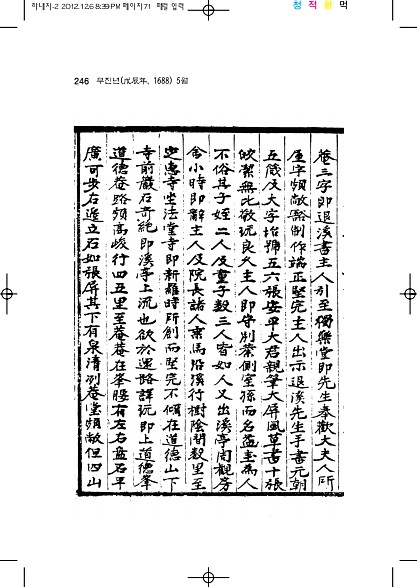 하내지-2 2012.12.6 8:39 PM 페이지71
청 적 황 먹
246 무진년(戊辰年, 1688) 5월
菴三字即退溪書主人引至獨樂堂即先生奉歡大夫人所
屋宇頗敞豁制作端正堅完主人出示退溪先生手書元朝
五箴及大字五六張安平大君親筆大屏風草書十張
皎潔無比敬玩良久主人即守別業側室孫而名圭爲人
不俗其子姪二人及童子數三人皆如人又出溪亭周觀房
舍小時即辭主人及院長諸人乘馬沿溪行樹陰間數里至
定惠寺坐法堂寺即新羅時所創而堅完不傾在道德山下
寺前巖石奇絶即溪亭上流也欲於還路詳玩即上道德峯
道德菴路頗高峻行四五里至菴菴在峯腰有左右盘石平
廣可步右邊立石如張屏其下有泉清冽菴堂頗敞但四山